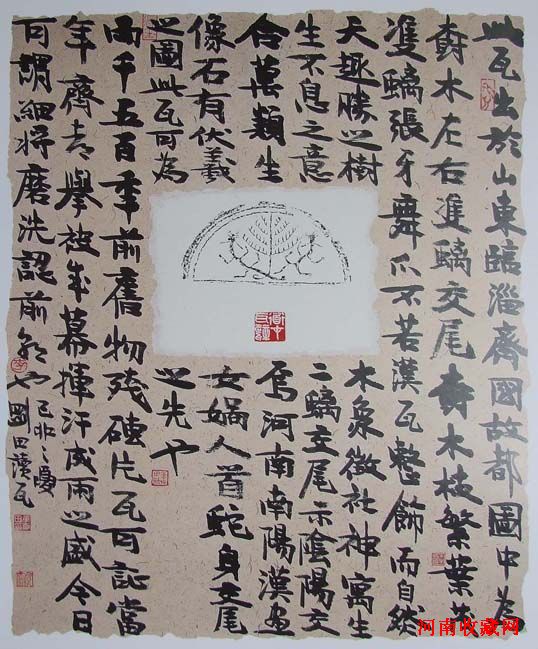 此瓦出於山東臨淄齊國故都圖中為
尌木左右雙螭交尾尌木枝繁葉茂
雙螭張牙舞爪不若漢瓦整飾而自然
天趣勝之樹木象徵社神寓生
生不息之意二螭交尾示陰陽交
合萬類生焉河南南陽漢畫
像石有伏羲女媧人首蛇身交尾
之圖此瓦可為之先也
兩千五百年前舊物殘磚片瓦可証當
年齊都舉袂成幕揮汗成雨之盛今日
可謂細將磨洗認前朝也
之夏
田讀瓦
河南收藏网